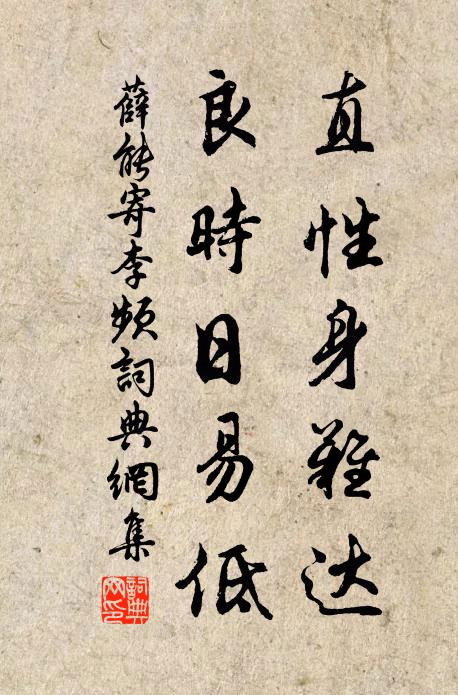 直性身難达
良時日易低
薛能寄李频詞典網集
詞典網印